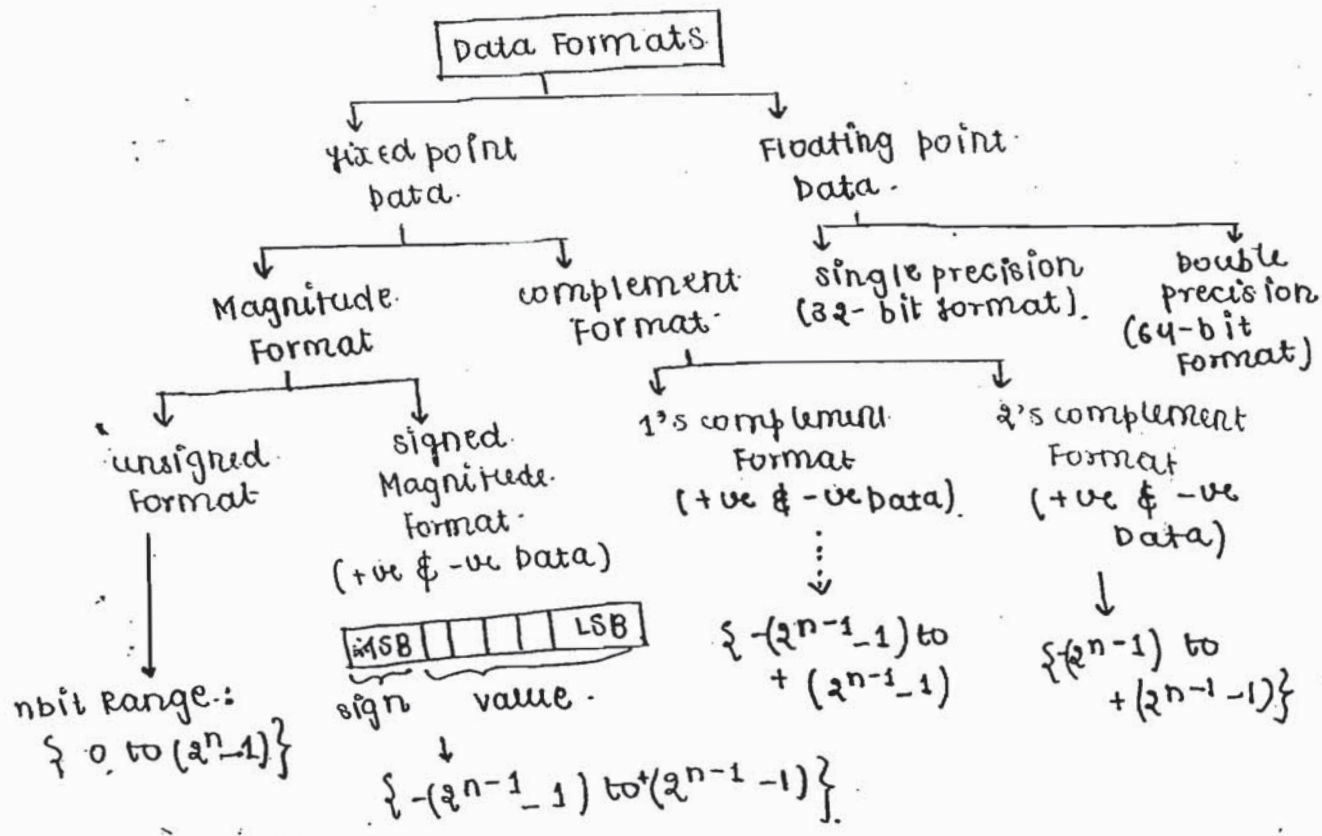 Data Formats
Fixed point
Data.
Floating point
Data.
Magnitude
Format
complement
Format
single precision
(32-bit format).
Double
precision
(64-bit
Format)
unsigned
Format
signed
Magnitude
Format
(+ve & -ve Data)
1's complement
Format
(+ve & -ve Data).
2's complement
Format
(+ve & -ve
Data)
MSB LSB
sign value.
nbit Range:
{ 0 to (2ⁿ-1)}
{-(2ⁿ⁻¹-1) to +(2ⁿ⁻¹-1)}.
{-(2ⁿ⁻¹-1) to
+ (2ⁿ⁻¹-1)
{-(2ⁿ⁻¹) to
+(2ⁿ⁻¹-1)}